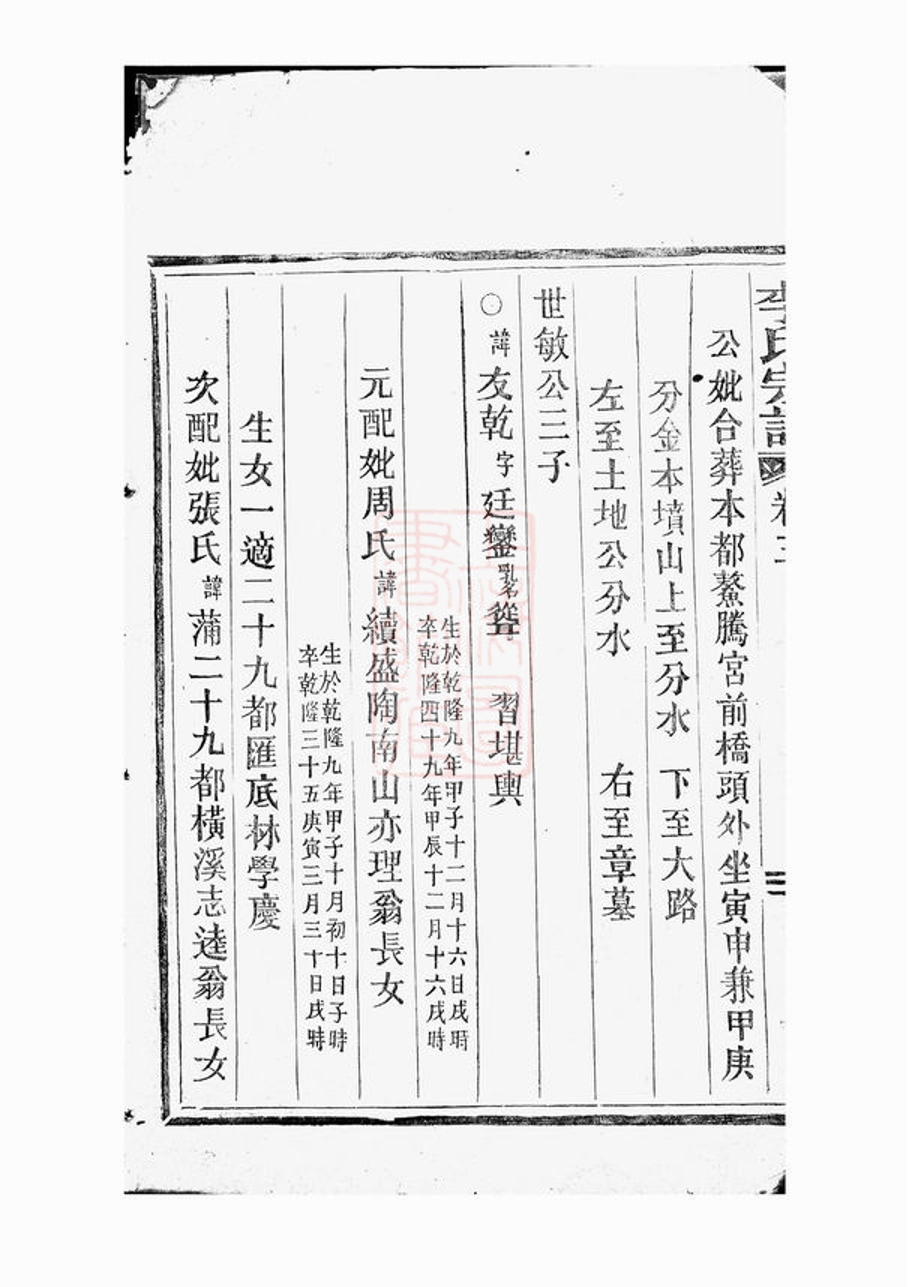 李氏宗譜 卷三
公妣合葬本都鰲騰宮前橋頭外坐寅申兼甲庚
分金本墳山上至分水 下至大路
左至土地公分水 右至章墓
世敏公三子
○諱友乾字廷鑾乳名 習堪輿
生於乾隆九年甲子十二月十六日戌時
卒乾隆四十九年甲辰十二月十六戌時
元配妣周氏諱續盛陶南山亦理翁長女
生於乾隆九年甲子十月初十日子時
卒乾隆三十五庚寅三月三十日戌時
生女一適二十九都匯底林學慶
次配妣張氏諱蒲二十九都橫溪志逵翁長女